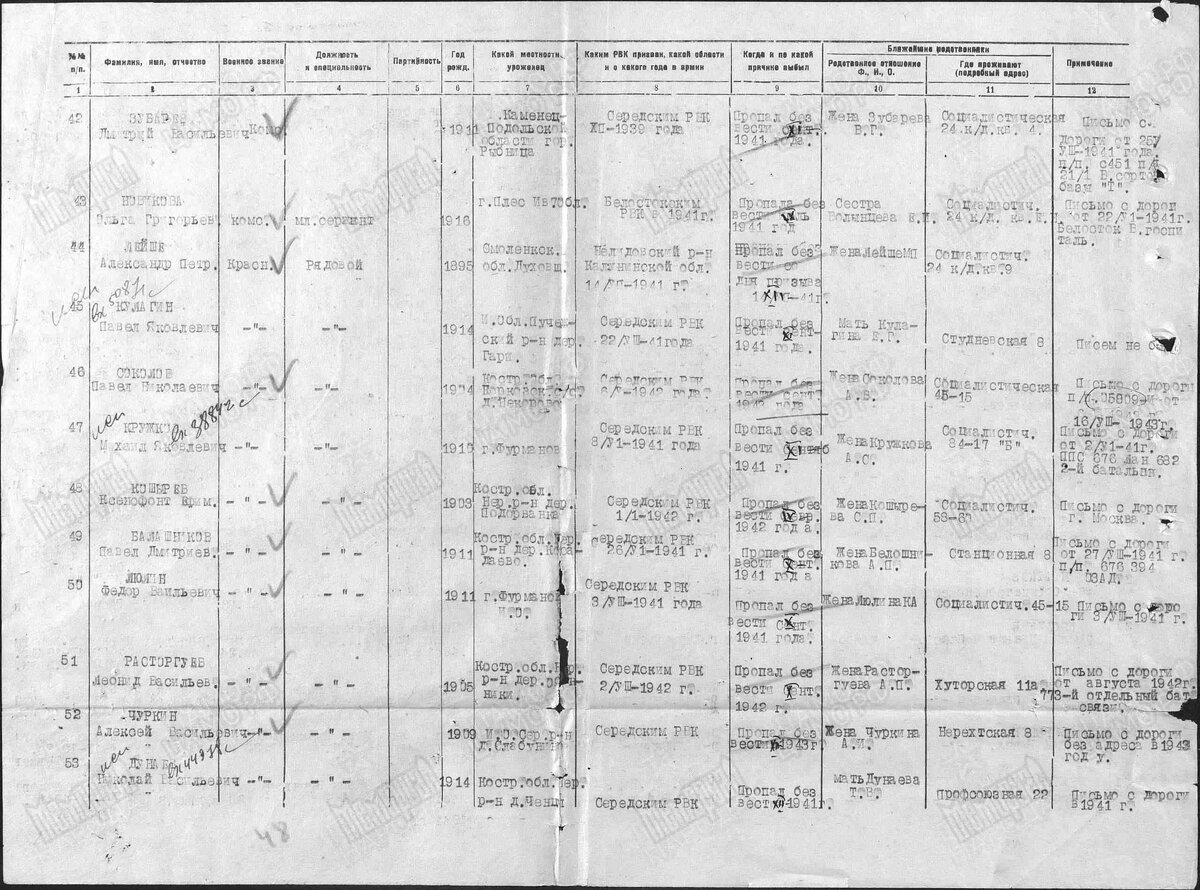 №№ п/п. Фамилия, имя, отчество Военное звание Должность и специальность Партийность Год рожд. Какой местности уроженец Каким РВК призван, какой области и с какого года в армии Когда и по какой причине выбыл Ближайшие родственники Примечание
Родственное отношение Ф., И., О. Где проживают (подробный адрес)
1 2 3 4 5 6 7 8 9 10 11 12
42 ЗУБАРЕВ
Дмитрий Васильевич Комс. 1911
Каменец-
Подольской
области гор.
Рыбница
Середским РВК
ХП-1939 года
Пропал без
вести
1941 года.
Жена Зубарева
В.Г.
Социалистическая
24 к/д.кв. 4.
Письмо с
дороги от 25/
УШ-1941 года.
п/п. с451 п/я
21/1 В.сорто
базы "Т".
43 НОВИКОВА
Ольга Григорьев. комс. мл.сержант 1916
г.Плес Ив.Обл.
Белостокским
РВК в 1941г.
Пропала без
вести
1941 год
Сестра
Волынцева
Социалистич.
24 к/д.
Письмо с дорог
от 22/У1-1941г.
Белосток В.госпи
таль.
44 ЛЕЙШЕ
Александр Петр. Красн. Рядовой 1895
Смоленск.
обл.Духовщ.
Нелидовский р-н
Калининской обл.
14/УП-1941 г.
Пропал без
вести со
дня призыва
ЖенаЛейшеМП
Социалистич.
24 к/д.кв.9
45 КУЛАГИН
Павел Яковлевич -"- -"- 1914
И.Обл.Пучеж-
ский р-н дер.
Гари.
Середским РВК
22/УШ-41года
Пропал без
вести
1941 года.
Мать Кула-
гина Е.Г.
Студневская 8
Писем не
46 СОКОЛОВ
Павел Николаевич -"- -"-
Костр.Обл.
Середским РВК
Пропал без
вести сент.
1942 года
ЖенаСоколова
А.В.
Социалистическая
45-15
Письмо с дороги
16/УШ- 1943г.
47 КРУЖКОВ
Михаил Яковлевич -"- -"-
г.Фурманов
Середским РВК
8/У1-1941 года
Пропал без
вести
1941 г.
ЖенаКружкова
А.С.
Социалистич.
84-17 "Б"
Письмо с дороги
от 2/У1-41г.
ППС 676 Лан 682
2-й батальон.
48 КОШЫРЕВ
Ксенофонт Ефим. -"- -"- 1903
Костр.обл.
Нер.р-н дер.
Подорванка
Середским РВК
1/1-1942 г.
Пропал без
вести
1942 года.
ЖенаКошыре-
ва С.П.
Социалистич.
Письмо с дороги
г. Москва.
49 БАЛАШНИКОВ
Павел Дмитриев. -"- -"- 1911
Костр.обл.Нер.
р-н дер.
Середским РВК
26/У1-1941г.
Пропал без
вести
1941 года
ЖенаБелошни-
кова А.П.
Станционная 8
Письмо с дороги
от 27/УШ-1941г.
п/п. 676 394
ОЗАД.
50 ЛЮЛИН
Федор Ваильевич -"- -"- 1911
г.Фурманов
И.О.
Середским РВК
3/УШ-1941 года
Пропал без
вести Сент.
1941 года.
ЖенаЛюлинаКА
Социалистич.45-15
Письмо с доро
ги 3/УШ-1941г.
51 РАСТОРГУЕВ
Леонид Васильев. -"- -"- 1905
Костр.обл.Нер.
р-н дер.
ники.
Середским РВК
2/УШ-1942 г.
Пропал без
вести Сент.
1942 г.
ЖенаРастор-
гуева А.П.
Хуторская 11а
Письмо с дороги
от августа 1942г.
773-й отдельный бат
связи.
52 ЧУРКИН
Алексей Васильевич -"- -"- 1909
И.О.Сер.р-н
д.Слабунино
Середским РВК
Пропал без
вести 1943г.
Жена Чуркина
А.И.
Нерехтская 8
Письмо с дороги
без адреса в 1943
году.
53 ДУНАЕВ
Николай Васильевич -"- -"- 1914
Костр.обл.Нер.
р-н д.Ченцы
Середским РВК
Пропал без
вести 1941г.
матьДунаева
Т.В.
Профсоюзная 22
Письмо с дороги
в 1941 г.
48